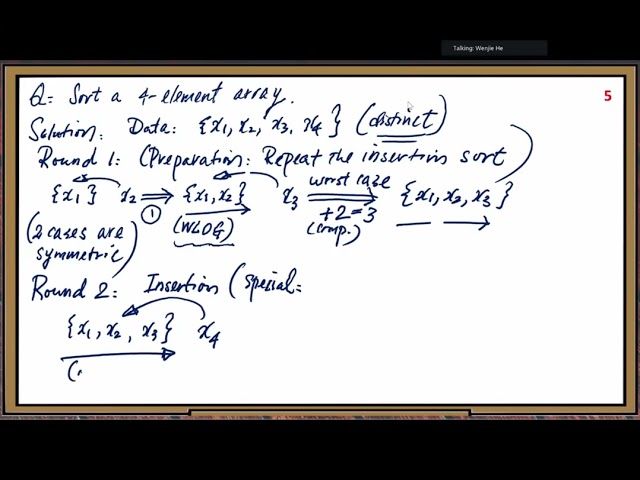 Talking: Wenjie He
5
Q: Sort a 4-element array.
Solution: Data: {x1, x2, x3, x4} (distinct)
Round 1: (Preparation: Repeat the insertion sort)
{x1} x2 ⟹ {x1, x2} x3 worst case {x1, x2, x3}
① (WLOG) +2=3
(comp.)
(2 cases are symmetric)
Round 2: Insertion (special:
{x1, x2, x3} x4
(